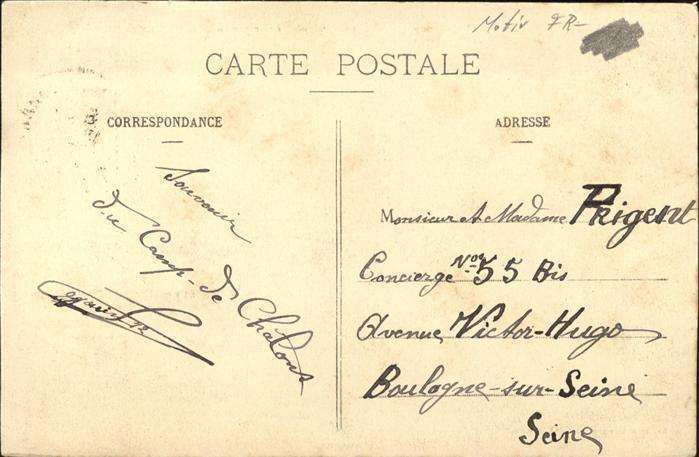 Motiv FR-
CARTE POSTALE
CORRESPONDANCE
ADRESSE
Souvenir
du Camp-de Châlons
Monsieur et Madame Prigent
Concierge Nos 55 Bis
Avenue Victor-Hugo
Boulogne-sur-Seine
Seine